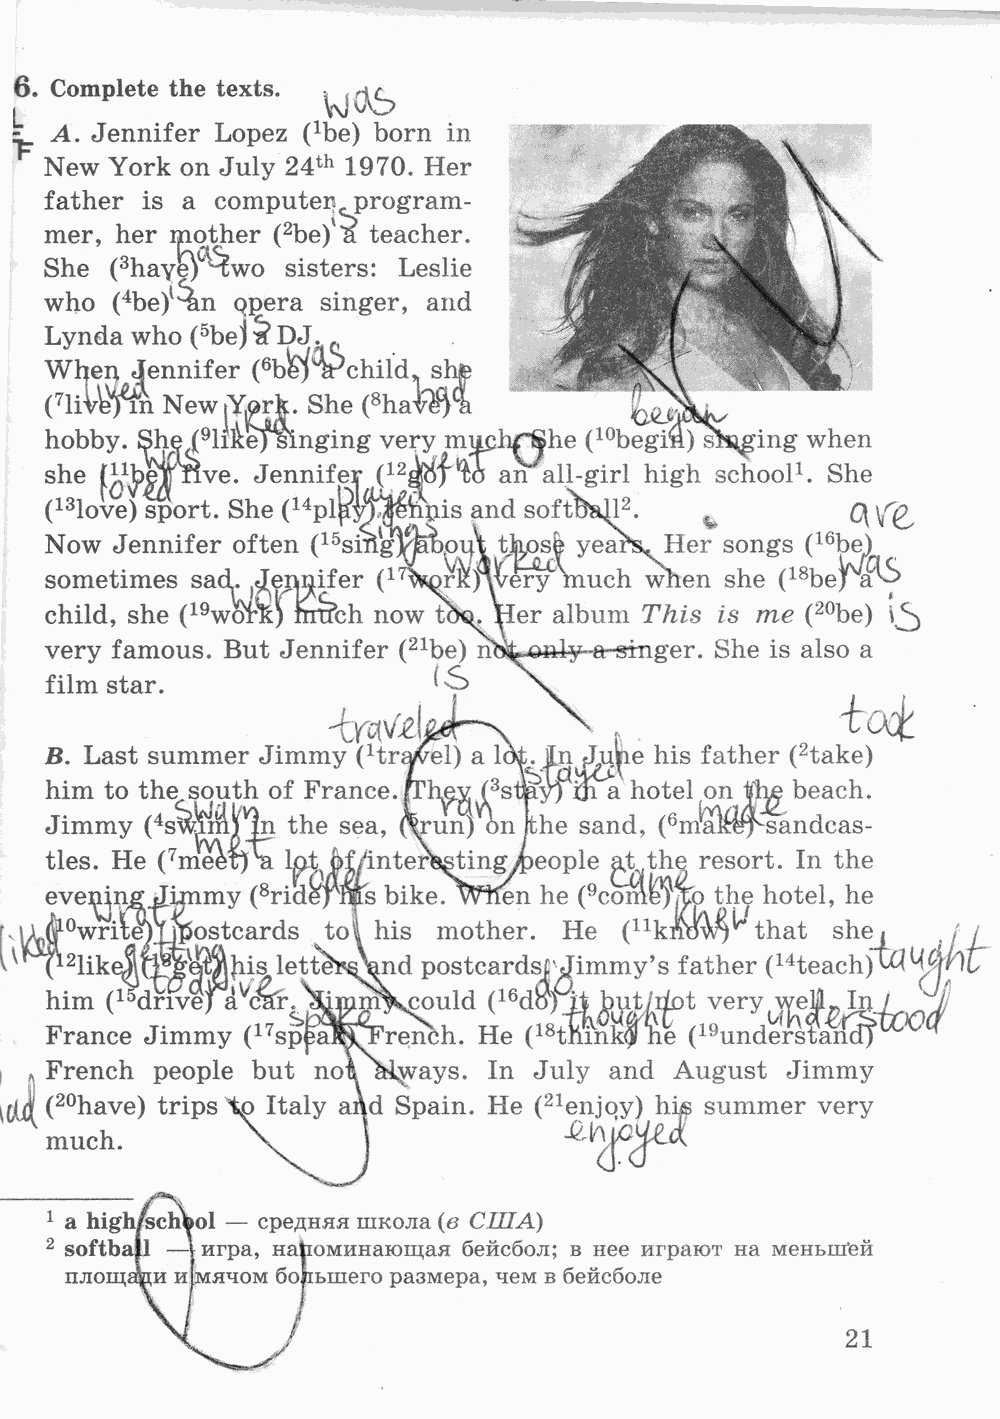 was
6. Complete the texts.
A. Jennifer Lopez (¹be) born in
New York on July 24th 1970. Her
father is a computer program-
is
mer, her mother (²be) a teacher.
has
She (³have) two sisters: Leslie
is
who (⁴be) an opera singer, and
is
Lynda who (⁵be) a DJ.
was
When Jennifer (⁶be) a child, she
lived had
(⁷live) in New York. She (⁸have) a
liked began
hobby. She (⁹like) singing very much. She (¹⁰begin) singing when
was went
she (¹¹be) five. Jennifer (¹²go) to an all-girl high school¹. She
loved played
(¹³love) sport. She (¹⁴play) tennis and softball².
sings are
Now Jennifer often (¹⁵sing) about those years. Her songs (¹⁶be)
worked was
sometimes sad. Jennifer (¹⁷work) very much when she (¹⁸be) a
works
child, she (¹⁹work) much now too. Her album This is me (²⁰be) is
very famous. But Jennifer (²¹be) not only a singer. She is also a
is
film star.
traveled took
B. Last summer Jimmy (¹travel) a lot. In June his father (²take)
stayed
him to the south of France. They (³stay) in a hotel on the beach.
swam ran made
Jimmy (⁴swim) in the sea, (⁵run) on the sand, (⁶make) sandcas-
met
tles. He (⁷meet) a lot of interesting people at the resort. In the
rode came
evening Jimmy (⁸ride) his bike. When he (⁹come) to the hotel, he
wrote knew
(¹⁰write) postcards to his mother. He (¹¹know) that she
liked getting taught
(¹²like) (¹³get) his letters and postcards. Jimmy's father (¹⁴teach)
to drive do
him (¹⁵drive) a car. Jimmy could (¹⁶do) it but not very well. In
spoke thought understood
France Jimmy (¹⁷speak) French. He (¹⁸think) he (¹⁹understand)
French people but not always. In July and August Jimmy
had
(²⁰have) trips to Italy and Spain. He (²¹enjoy) his summer very
enjoyed
much.
¹ a high school — средняя школа (в США)
² softball — игра, напоминающая бейсбол; в нее играют на меньшей
площади и мячом большего размера, чем в бейсболе
21